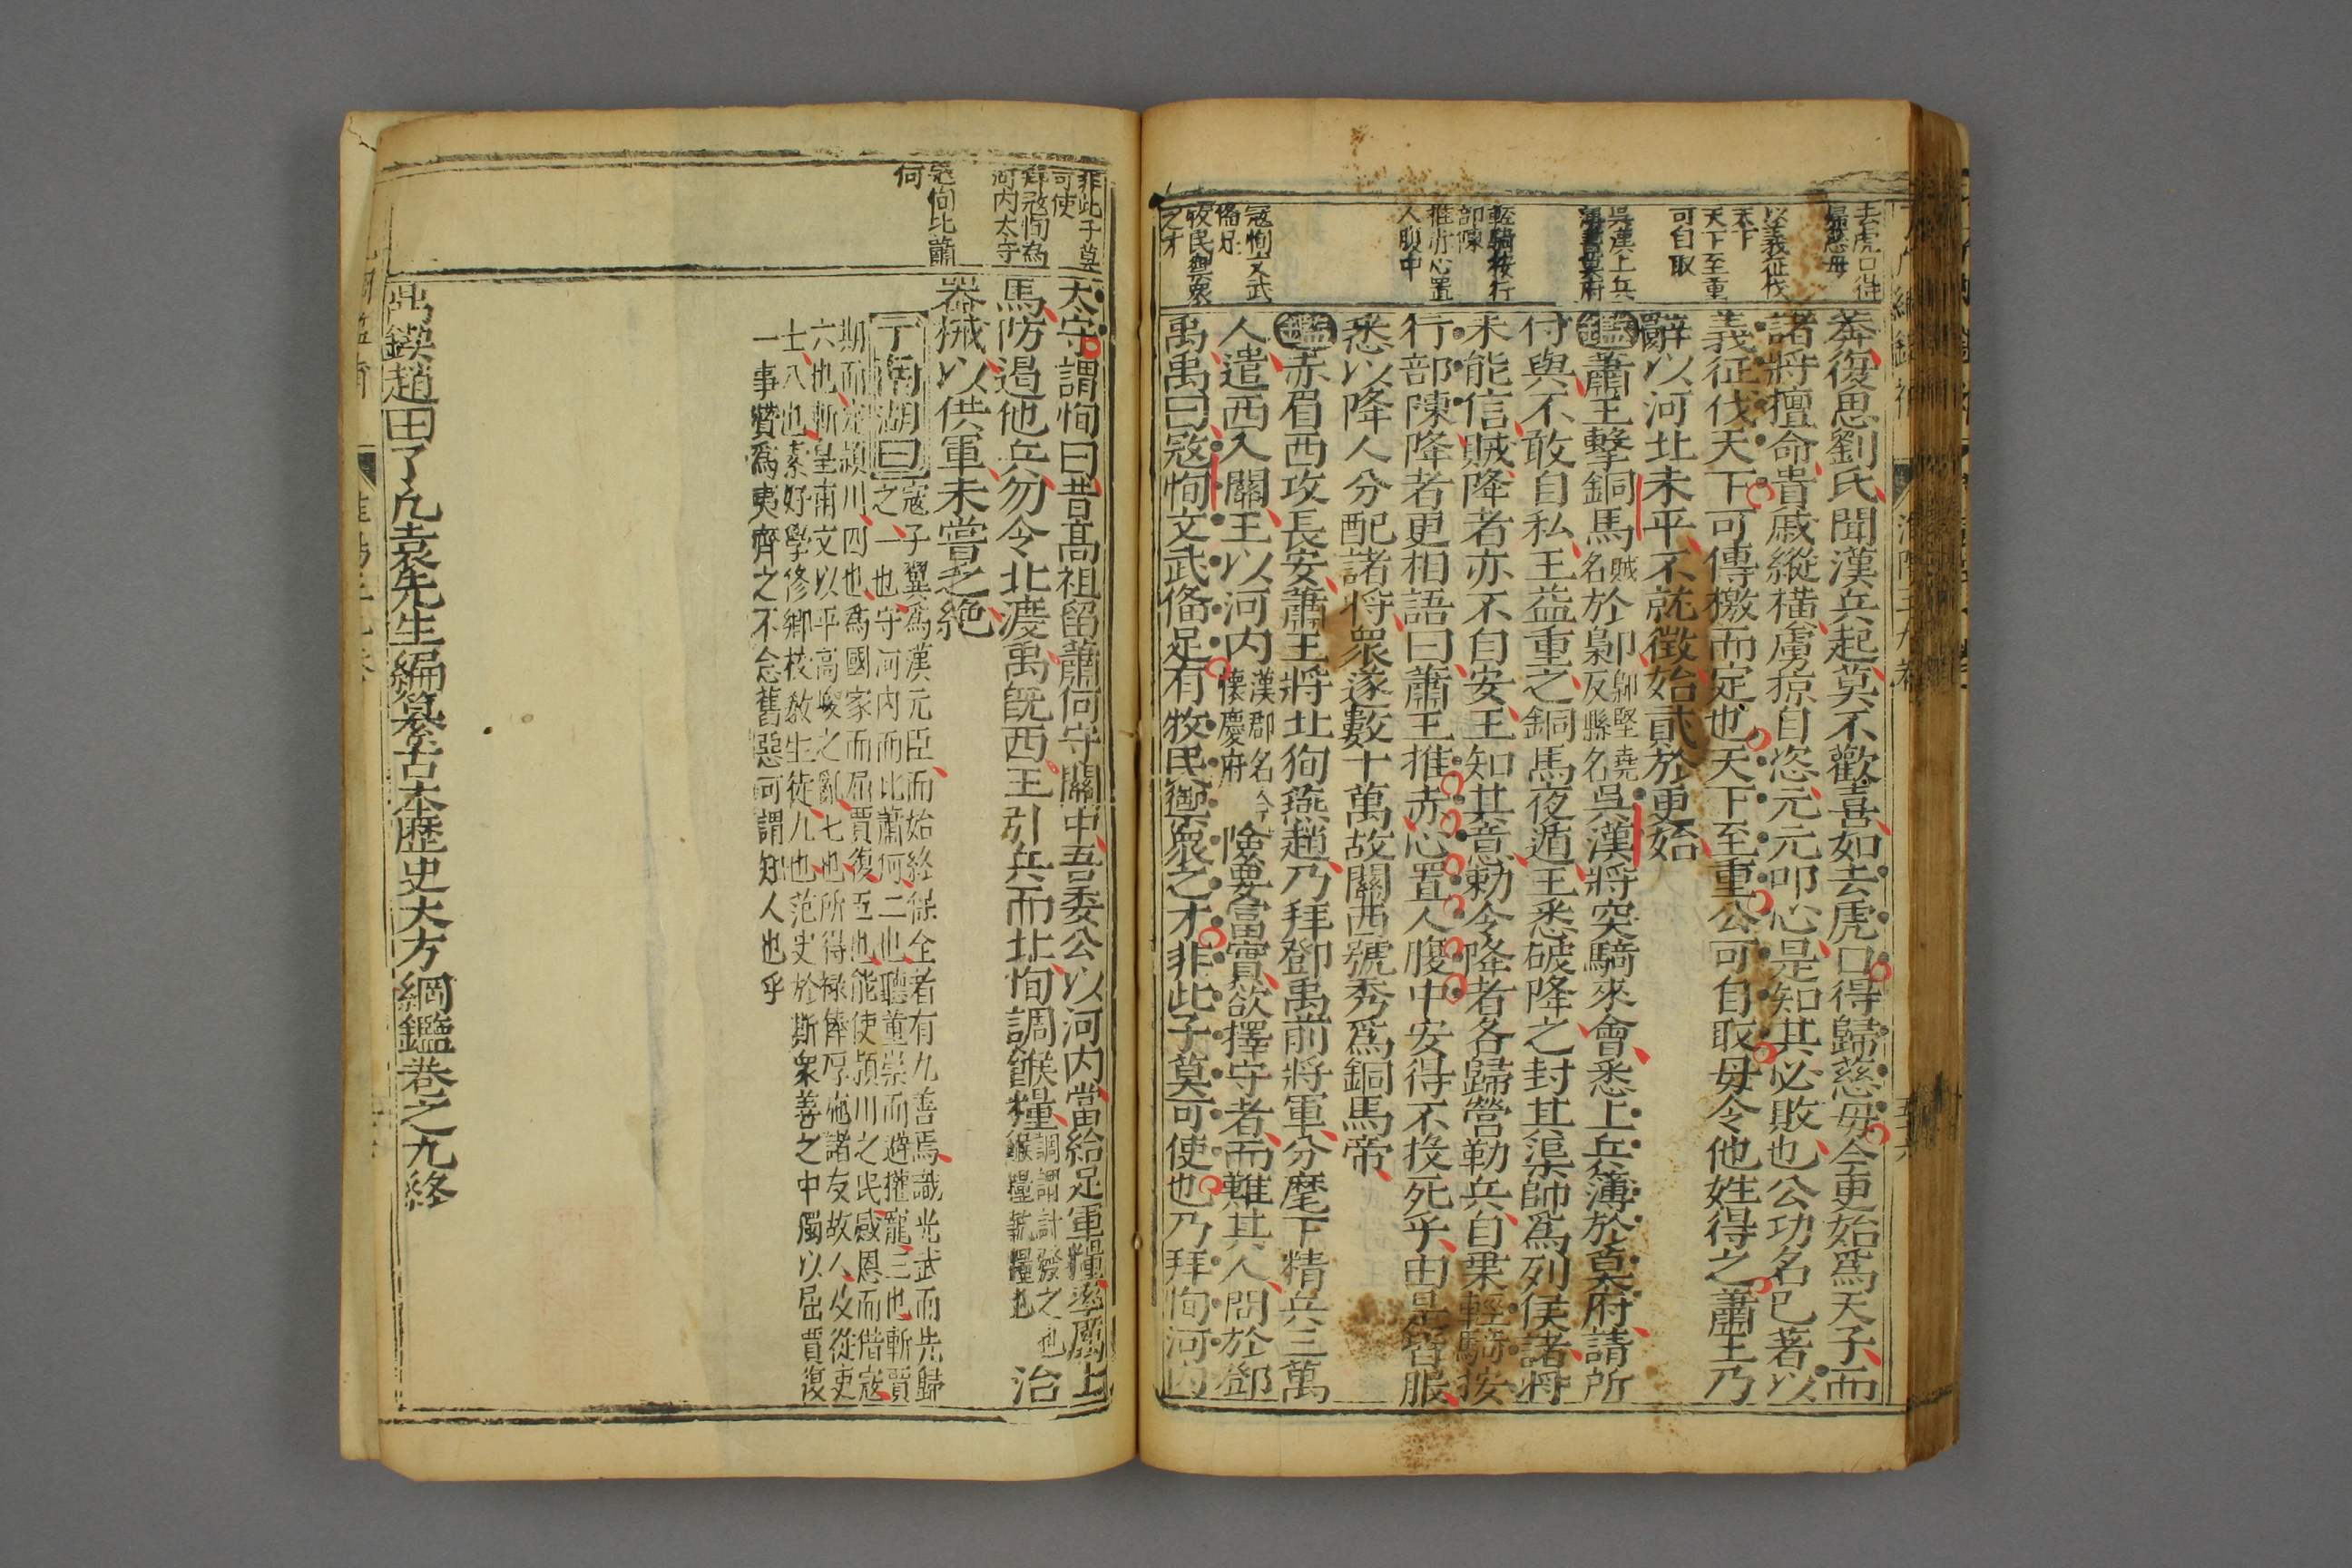 去虎口得
歸慈母
以義征伐
天下
天下至重
可自取
吳漢上兵
簿於莫府
輕騎按行
部陳
推赤心置
人腹中
冦恂文武
俻足
牧民御衆
之才
莽復思劉氏聞漢兵起莫不歡喜如去虎口得歸慈母今更始爲天子而
諸將擅命貴戚縱横虜掠自恣元元叩心是知其必敗也公功名已著以
義征伐天下可傳檄而定也天下至重公可自取毋令他姓得之蕭王乃
辭以河北未平不就徵始貳於更始
鑑蕭王擊銅馬賊名於鄡卽鄡堅堯反縣名吳漢將突騎來會悉上兵簿於莫府請所
付與不敢自私王益重之銅馬夜遁王悉破降之封其渠帥爲列侯諸將
未能信賊降者亦不自安王知其意勅令降者各歸營勒兵自乗輕騎按
行部陳降者更相語曰蕭王推赤心置人腹中安得不投死乎由是皆服
悉以降人分配諸將衆遂數十萬故關西號秀爲銅馬帝
鑑赤眉西攻長安蕭王將北狥燕趙乃拜鄧禹前將軍分麾下精兵三萬
人遣西入關王以河内漢郡名今懷慶府險要富實欲擇守者而難其人問於鄧
禹禹曰冦恂文武俻足有牧民御衆之才非此子莫可使也乃拜恂河内
非此子莫
可使
拜冦恂爲
河内太守
冦恂比蕭
何
太守謂恂曰昔高祖留蕭何守關中吾委公以河内當給足軍糧率厲士
馬防遏他兵勿令北渡禹旣西王引兵而北恂調餱糧調謂計發之也餱糧乾糧也治
器械以供軍未嘗乏絶
丁南湖曰寇子翼爲漢元臣而始終保全者有九善焉識光武而先歸
之一也守河内而比蕭何二也聽董崇而避權寵三也斬賈
期而定潁川四也爲國家而屈賈復五也能使潁川之民感恩而借寇
六也斬皇甫文以平高峻之亂七也所得禄俸厚施諸友故人及從吏
士八也素好學修鄉校教生徒九也范史於斯衆善之中獨以屈賈復
一事贊爲夷齊之不念舊惡可謂知人也乎
鼎鍥趙田了凡袁先生編纂古本歷史大方綱鑑卷之九終